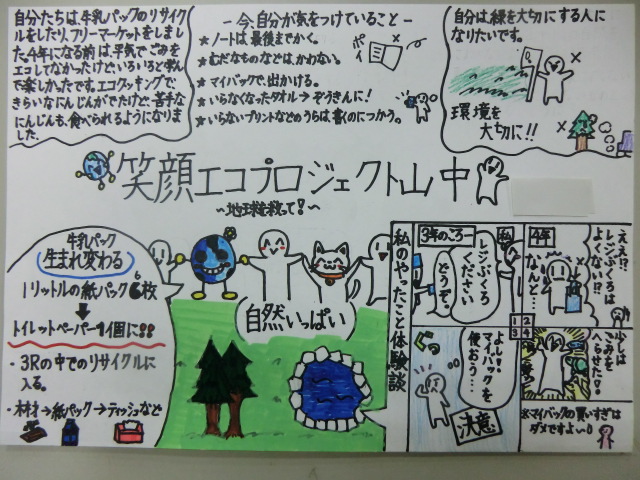 自分たちは、牛乳パックのリサイクル
をしたり、フリーマーケットをしまし
た。4年になる前は、平気でごみを
エコしてなかったけど、いろいろと学ん
で楽しかったです。エコクッキングで、
きらいなにんじんがでたけど、苦手な
にんじんも、食べられるようになりま
した。
-今、自分が気をつけていること-
★ノートは、最後までかく。
★むだなものなどは、かわない。
★マイバックで、出かける。
★いらなくなったタオル→ぞうきんに!
★いらないプリントなどのうらは、書くのにつかう。
ポイ
自分は、緑を大切にする人に
なりたいです。
環境を
大切に!!
笑顔エコプロジェクト山中
~地球を救って!~
牛乳パック
生まれ変わる
1リットルの紙パック6枚
トイレットペーパー1個に!!
・3Rの中でのリサイクルに
入る。
・木材→紙パック→ティッシュなど
自然いっぱい
私のやったこと体験談
3年のころ
私
レジぶくろ
ください
どうぞ
4年
ええ!?
レジぶくろは
よくない!?
なんと…
1 2
3 4
よし!
マイバックを
使おう…
決意
少しは
ごみを
へらせた!
※マイバックの買いすぎは
ダメですよー